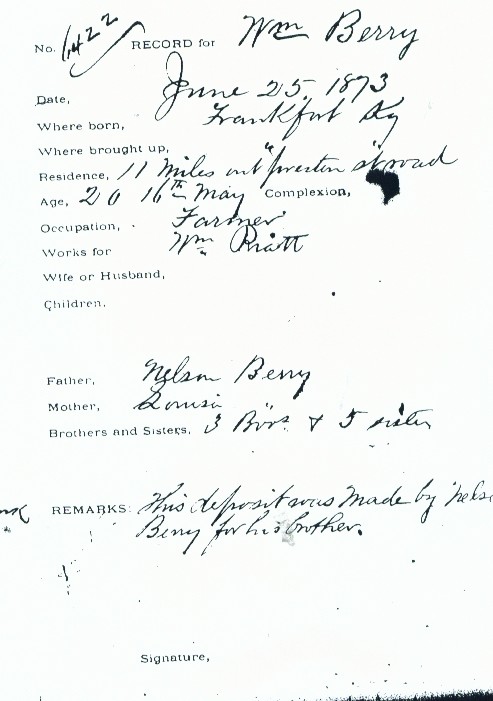 No. 6422 RECORD for Wm Berry
Date, June 25, 1873
Where born, Frankfort Ky
Where brought up,
Residence, 11 miles out "preston st road
Age, 20 16th May Complexion,
Occupation, Farmer
Works for Wm Pratt
Wife or Husband,
Children,
Father, Nelson Berry
Mother, Louisa
Brothers and Sisters, 3 Bros. & 5 sister
REMARKS: This deposit was made by Nelso
Berry for his brother.
Signature,